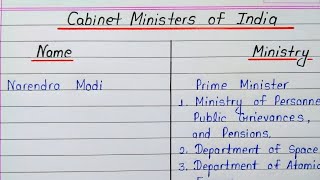 Cabinet Ministers of India
Name
Ministry
Narendra Modi
Prime Minister
1. Ministry of Personne
Public Grievances,
and Pensions.
2. Department of Space
3. Department of Atomic